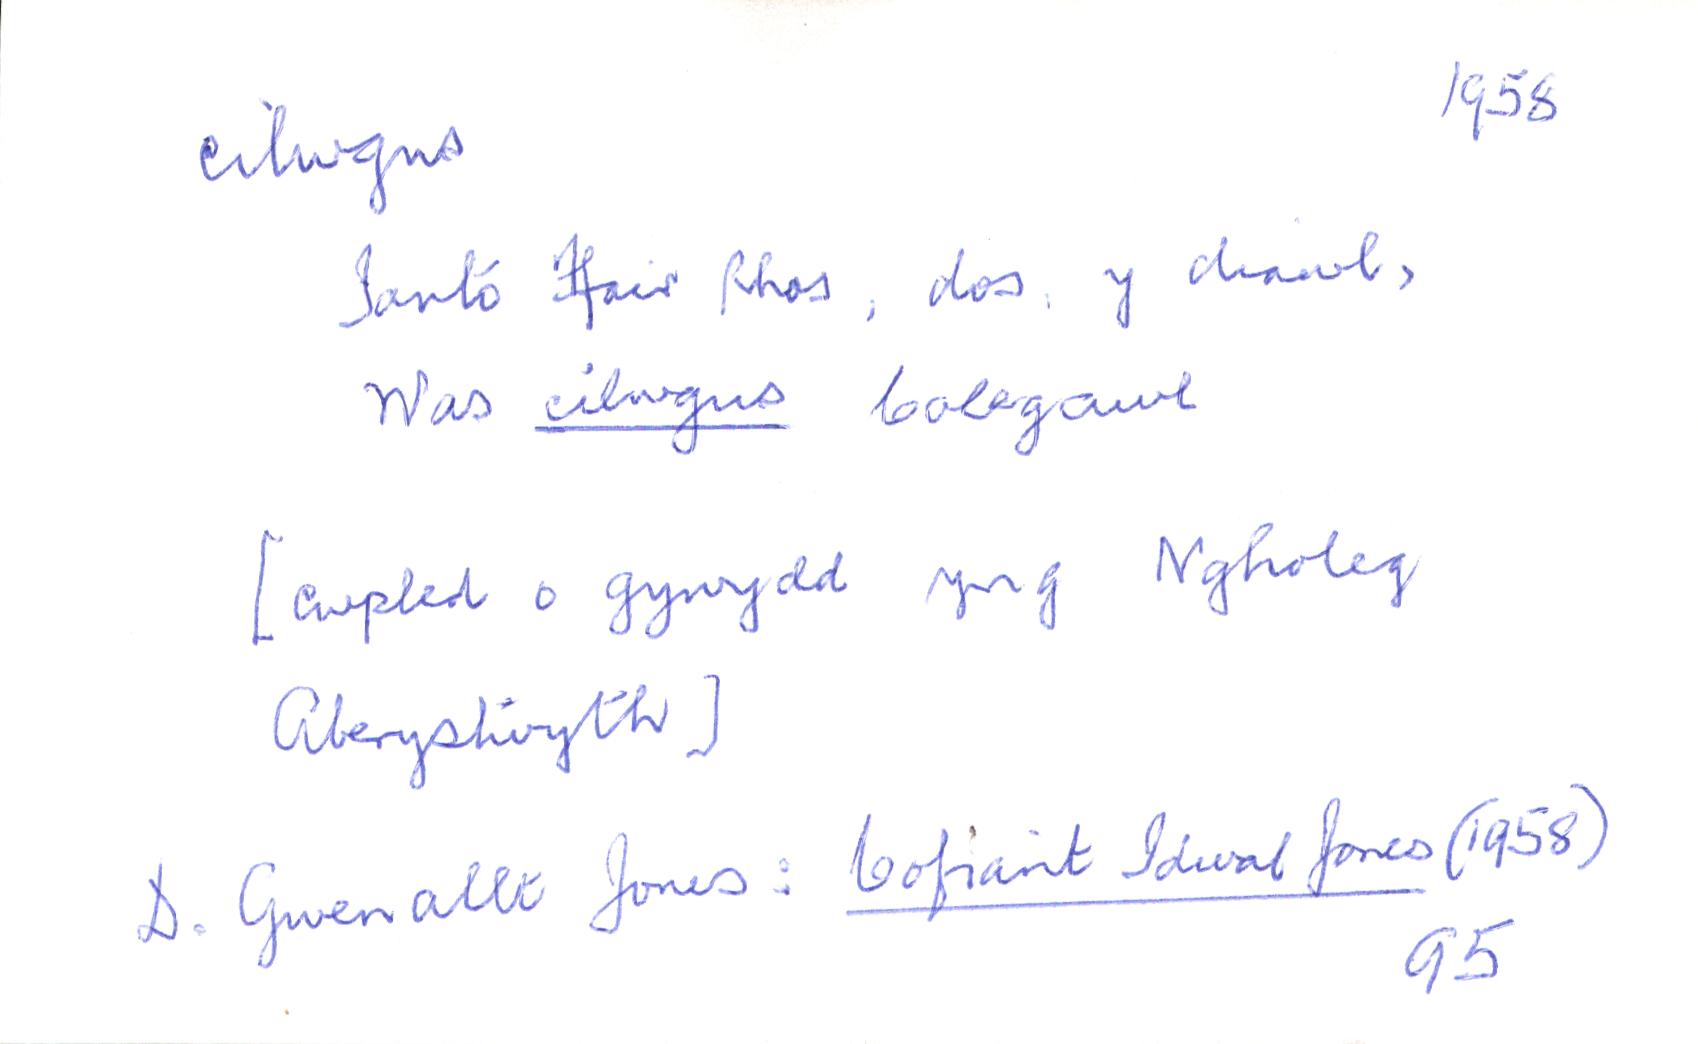 1958
cilwgus
Ianto Ffair Rhos, dos, y diawl,
Was cilwgus colegawl
[cwpled o gywydd yng Ngholeg
Aberystwyth]
D. Gwenallt Jones: Cofiant Idwal Jones (1958)
95